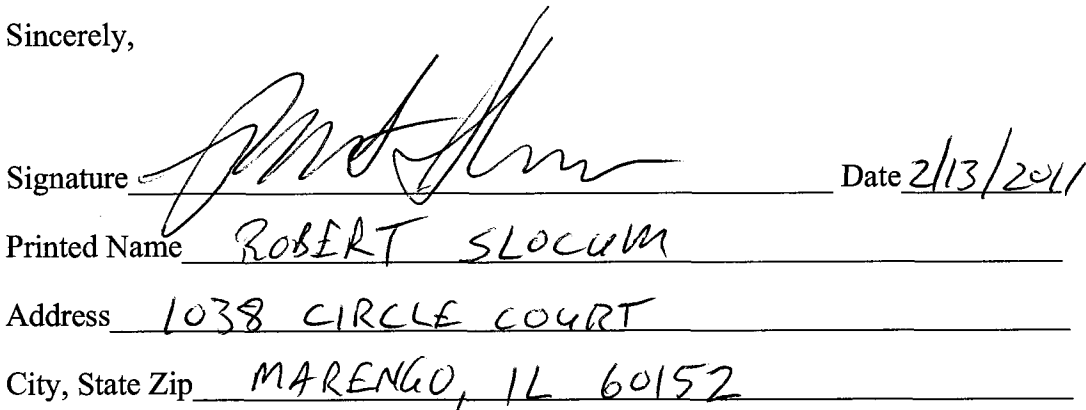 Sincerely,
Signature Date 2/13/2011
Printed Name ROBERT SLOCUM
Address 1038 CIRCLE COURT
City, State Zip MARENGO, IL 60152